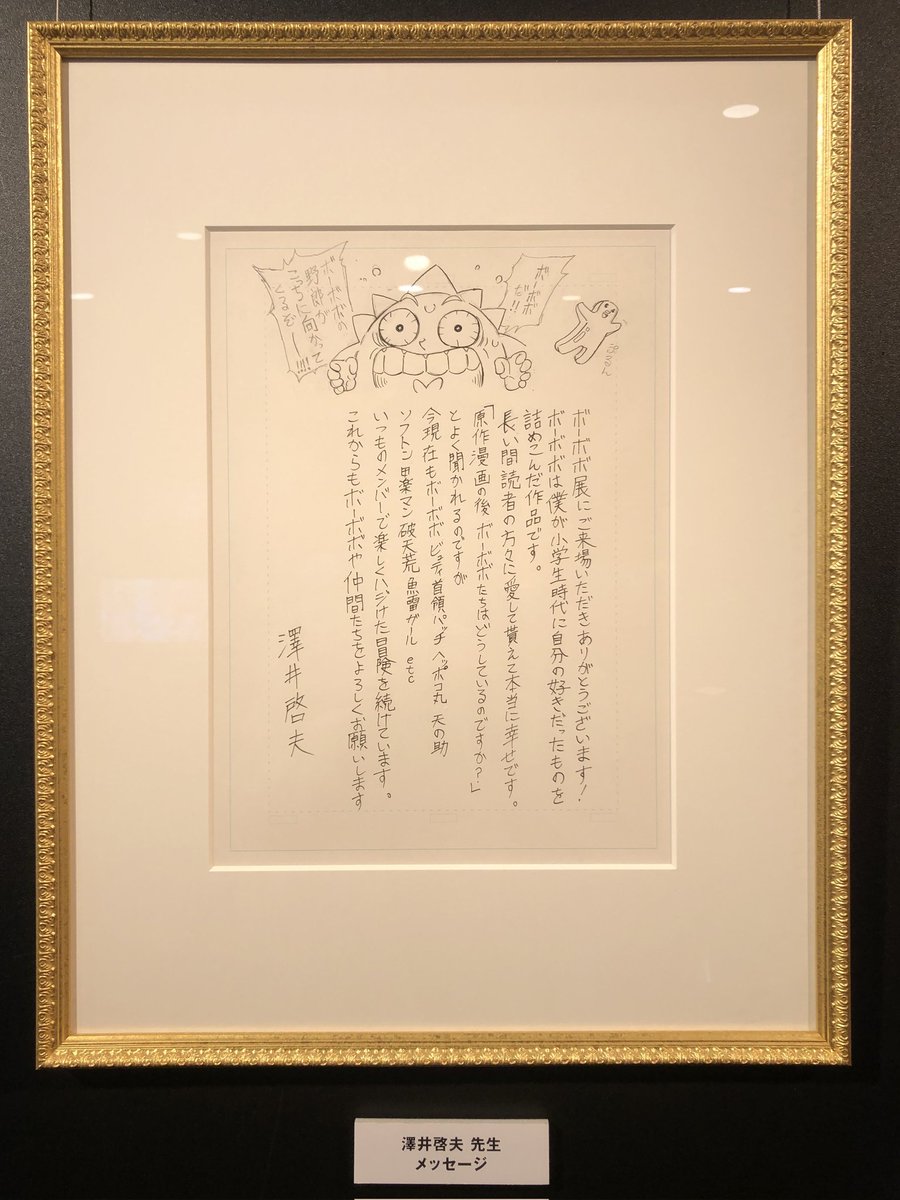 ボーボボ
だ!!
ぷるん
ボーボボの
野郎が
こっちに向かって
くるぞー!!!!
ボーボボ展にご来場いただきありがとうございます!
ボーボボは僕が小学生時代に自分の好きだったものを
詰めこんだ作品です。
長い間読者の方々に愛して貰えて本当に幸せです。
「原作漫画の後 ボーボボたちはどうしているのですか?」
とよく聞かれるのですが
今現在もボーボボ ビュティ 首領パッチ ヘッポコ丸 天の助
ソフトン 田楽マン 破天荒 魚雷ガール etc
いつものメンバーで楽しくハジけた冒険を続けています。
これからもボーボボや仲間たちをよろしくお願いします
澤井啓夫
澤井啓夫 先生
メッセージ